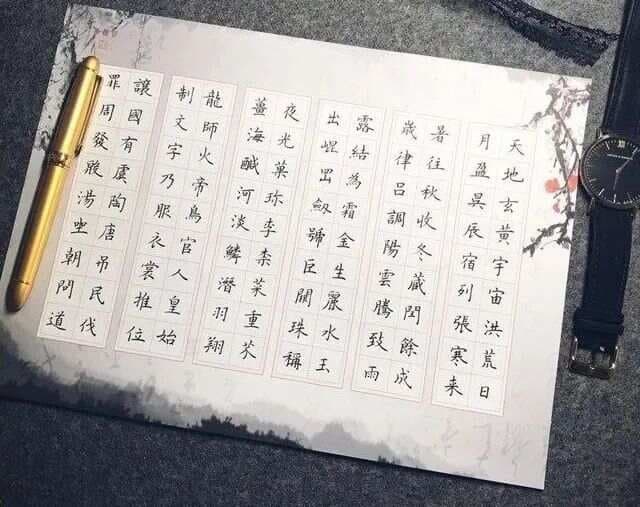 天地玄黃宇宙洪荒日
月盈昃辰宿列張寒来
暑往秋收冬藏閏餘成
歲律呂調陽雲騰致雨
露結為霜金生麗水玉
出崐岡劔號巨闕珠稱
夜光菓珍李柰菜重芥
薑海鹹河淡鱗潛羽翔
龍師火帝鳥官人皇始
制文字乃服衣裳推位
讓國有虞陶唐吊民伐
罪周發殷湯坐朝問道